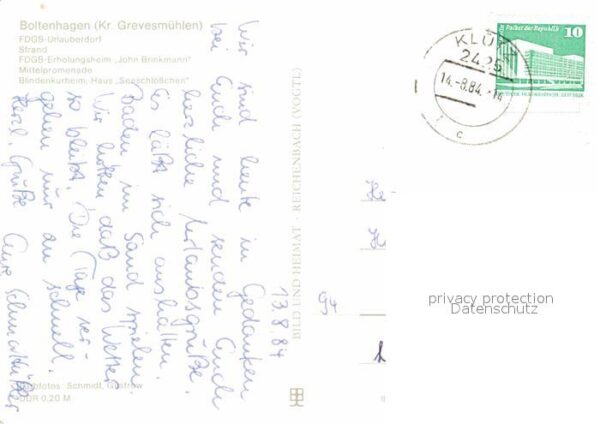 Boltenhagen (Kr. Grevesmühlen)
FDGB-Urlauberdorf
Strand
FDGB-Erholungsheim „John Brinkmann"
Mittelpromenade
Blindenkurheim, Haus „Seeschlößchen"
13.8.84
Wir sind heute in Gedanken
bei Euch und senden Euch
herzliche Urlaubsgrüße.
Es läßt sich aushalten.
Baden im Sand spielen.
Wir hoffen daß das Wetter
so bleibt. Die Tage ver-
gehen nur zu schnell.
Herzl. Grüße
Eure
BILD UND HEIMAT · REICHENBACH (VOGTL)
Farbfotos Schmidt, Güstrow
DDR 0,20 M
KLÜTZ
2425
14.-8.84.-14
c
10
94
privacy protection
Datenschutz